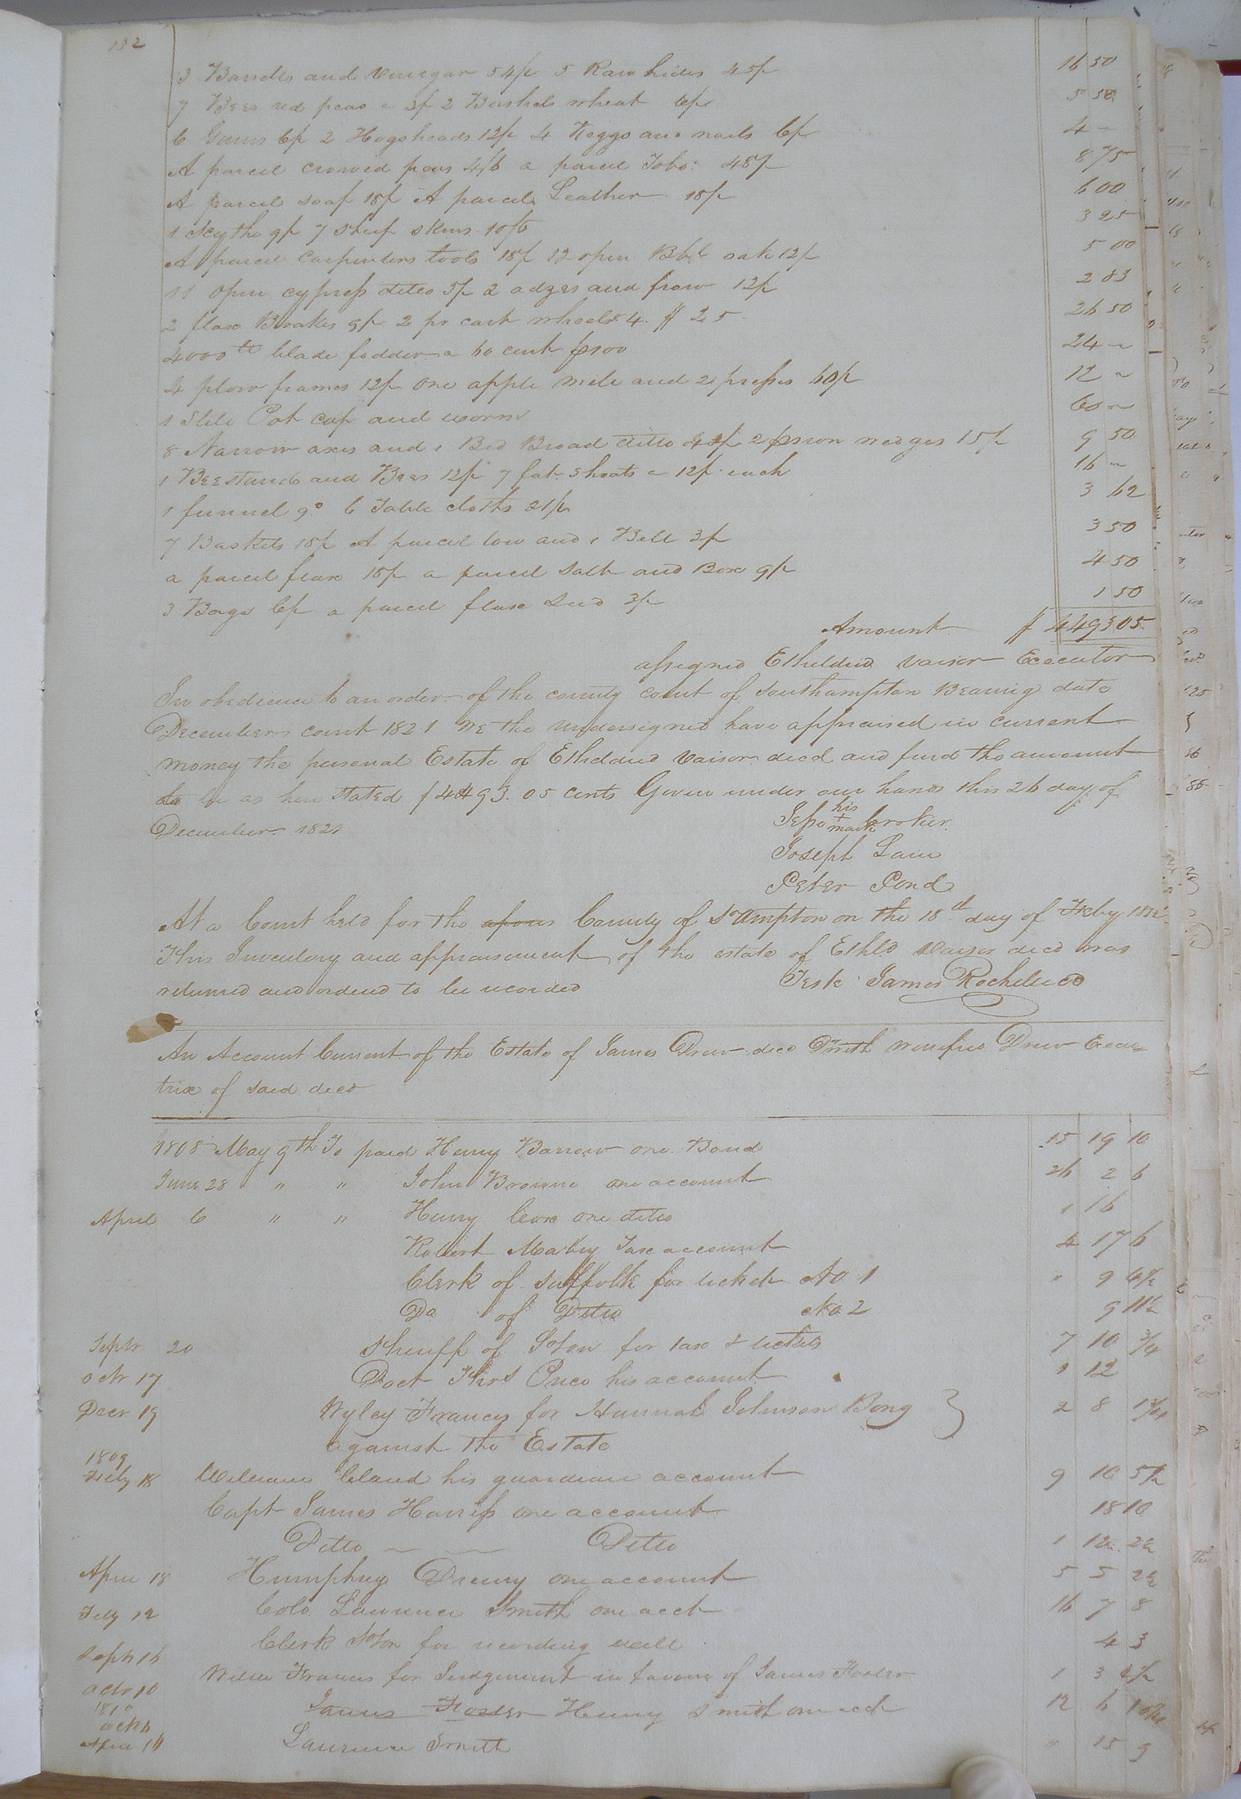 132
3 Barrells and vinegar 54/ 5 Raw hides 45/ 16 50
7 Bees red peas a 3/ 2 Bushels wheat 6/ 5 50
6 Gums 6/ 2 Hogsheads 12/ 4 Keggs and nails 6/ 4 -
A parcel crowed peas 4/6 a parcel Tobo: 48/ 8 75
A parcel soap 18/ A parcel Leather 18/ 6 00
1 Scythe 9/ 7 Sheep skins 10/6 3 25
A parcel carpenters tools 18/ 12 open Bbls oak 12/ 5 00
11 open cypress ditto 5/ 2 adzes and frow 12/ 2 83
2 flax Brakes 9/ 2 pr cart wheels 4. $ 25 26 50
4000 lb blade fodder a 60 cent 24 -
4 plow frames 12/ one apple mill and 2 presses 60/ 12 -
1 Still Pot cap and worm 60 -
8 Narrow axes and 1 Broad ditto 2 iron wedges 15/ 9 50
1 Beestand and Bees 12/ 7 fat Shoats a 12/ each 16 -
1 funnel 9d 6 Table cloths 21/ 3 62
7 Baskets 18/ A parcel tow and 1 Bell 3/ 3 50
a parcel flax 18/ a parcel salt and Box 9/ 4 50
3 Bags 6/ a parcel flax seed 3/ 1 50
Amount $ 4493 05
assigned Etheldred Vaiser Executor
In obedience to an order of the county court of Southampton Bearing date
December court 1821 We the undersigned have appraised in current
money the personal Estate of Etheldred Vaiser decd and find the amount
to be as here stated $4493.05 cents Given under our hands this 26 day of
December 1821
Jesse his + mark Croker
Joseph Lain
Peter Pond
At a Court held for the County of S'ampton on the 18th day of Feby 1822
This Inventory and appraisement of the estate of Etheld Vaiser decd was
returned and ordered to be recorded Teste James Rochelle CC
An Account Current of the Estate of James Drew decd With Winifred Drew Execu
trix of said decd
1808 May 9th To paid Henry Barrow one Bond 15 19 10
June 28 " " John Browne one account 26 2 6
April 6 " " Henry Cox one ditto 1 16
Robert Mabry Tax account 4 17 6
Clerk of Suffolk for ticket No 1 " 9 4½
Do of Ditto No 2 9 11½
Septr 20 Sheriff of Soton for tax & tickets 7 10 ¾
Octr 17 Doct Thos Price his account 1 12
Decr 19 Wyley Francis for Hannah Johnson Bong } 2 8
against the Estate
1809
Feby 18 William Bland his guardian account 9 10 5½
Capt James Harriss one account 18 10
Ditto Ditto 1 12 2½
April 18 Humphrey Drewry one account 5 5 2½
July 12 Colo Laurence Smith one acct 16 7 8
Septr 16 Clerk Soton for recording will 4 3
Octr 10 Willie Francis for Judgement in favour of James Foster 1 3 4½
1810
Oct 4 James Foster Henry Smith one acct 12 6
April 14 Laurence Smith " 15 9